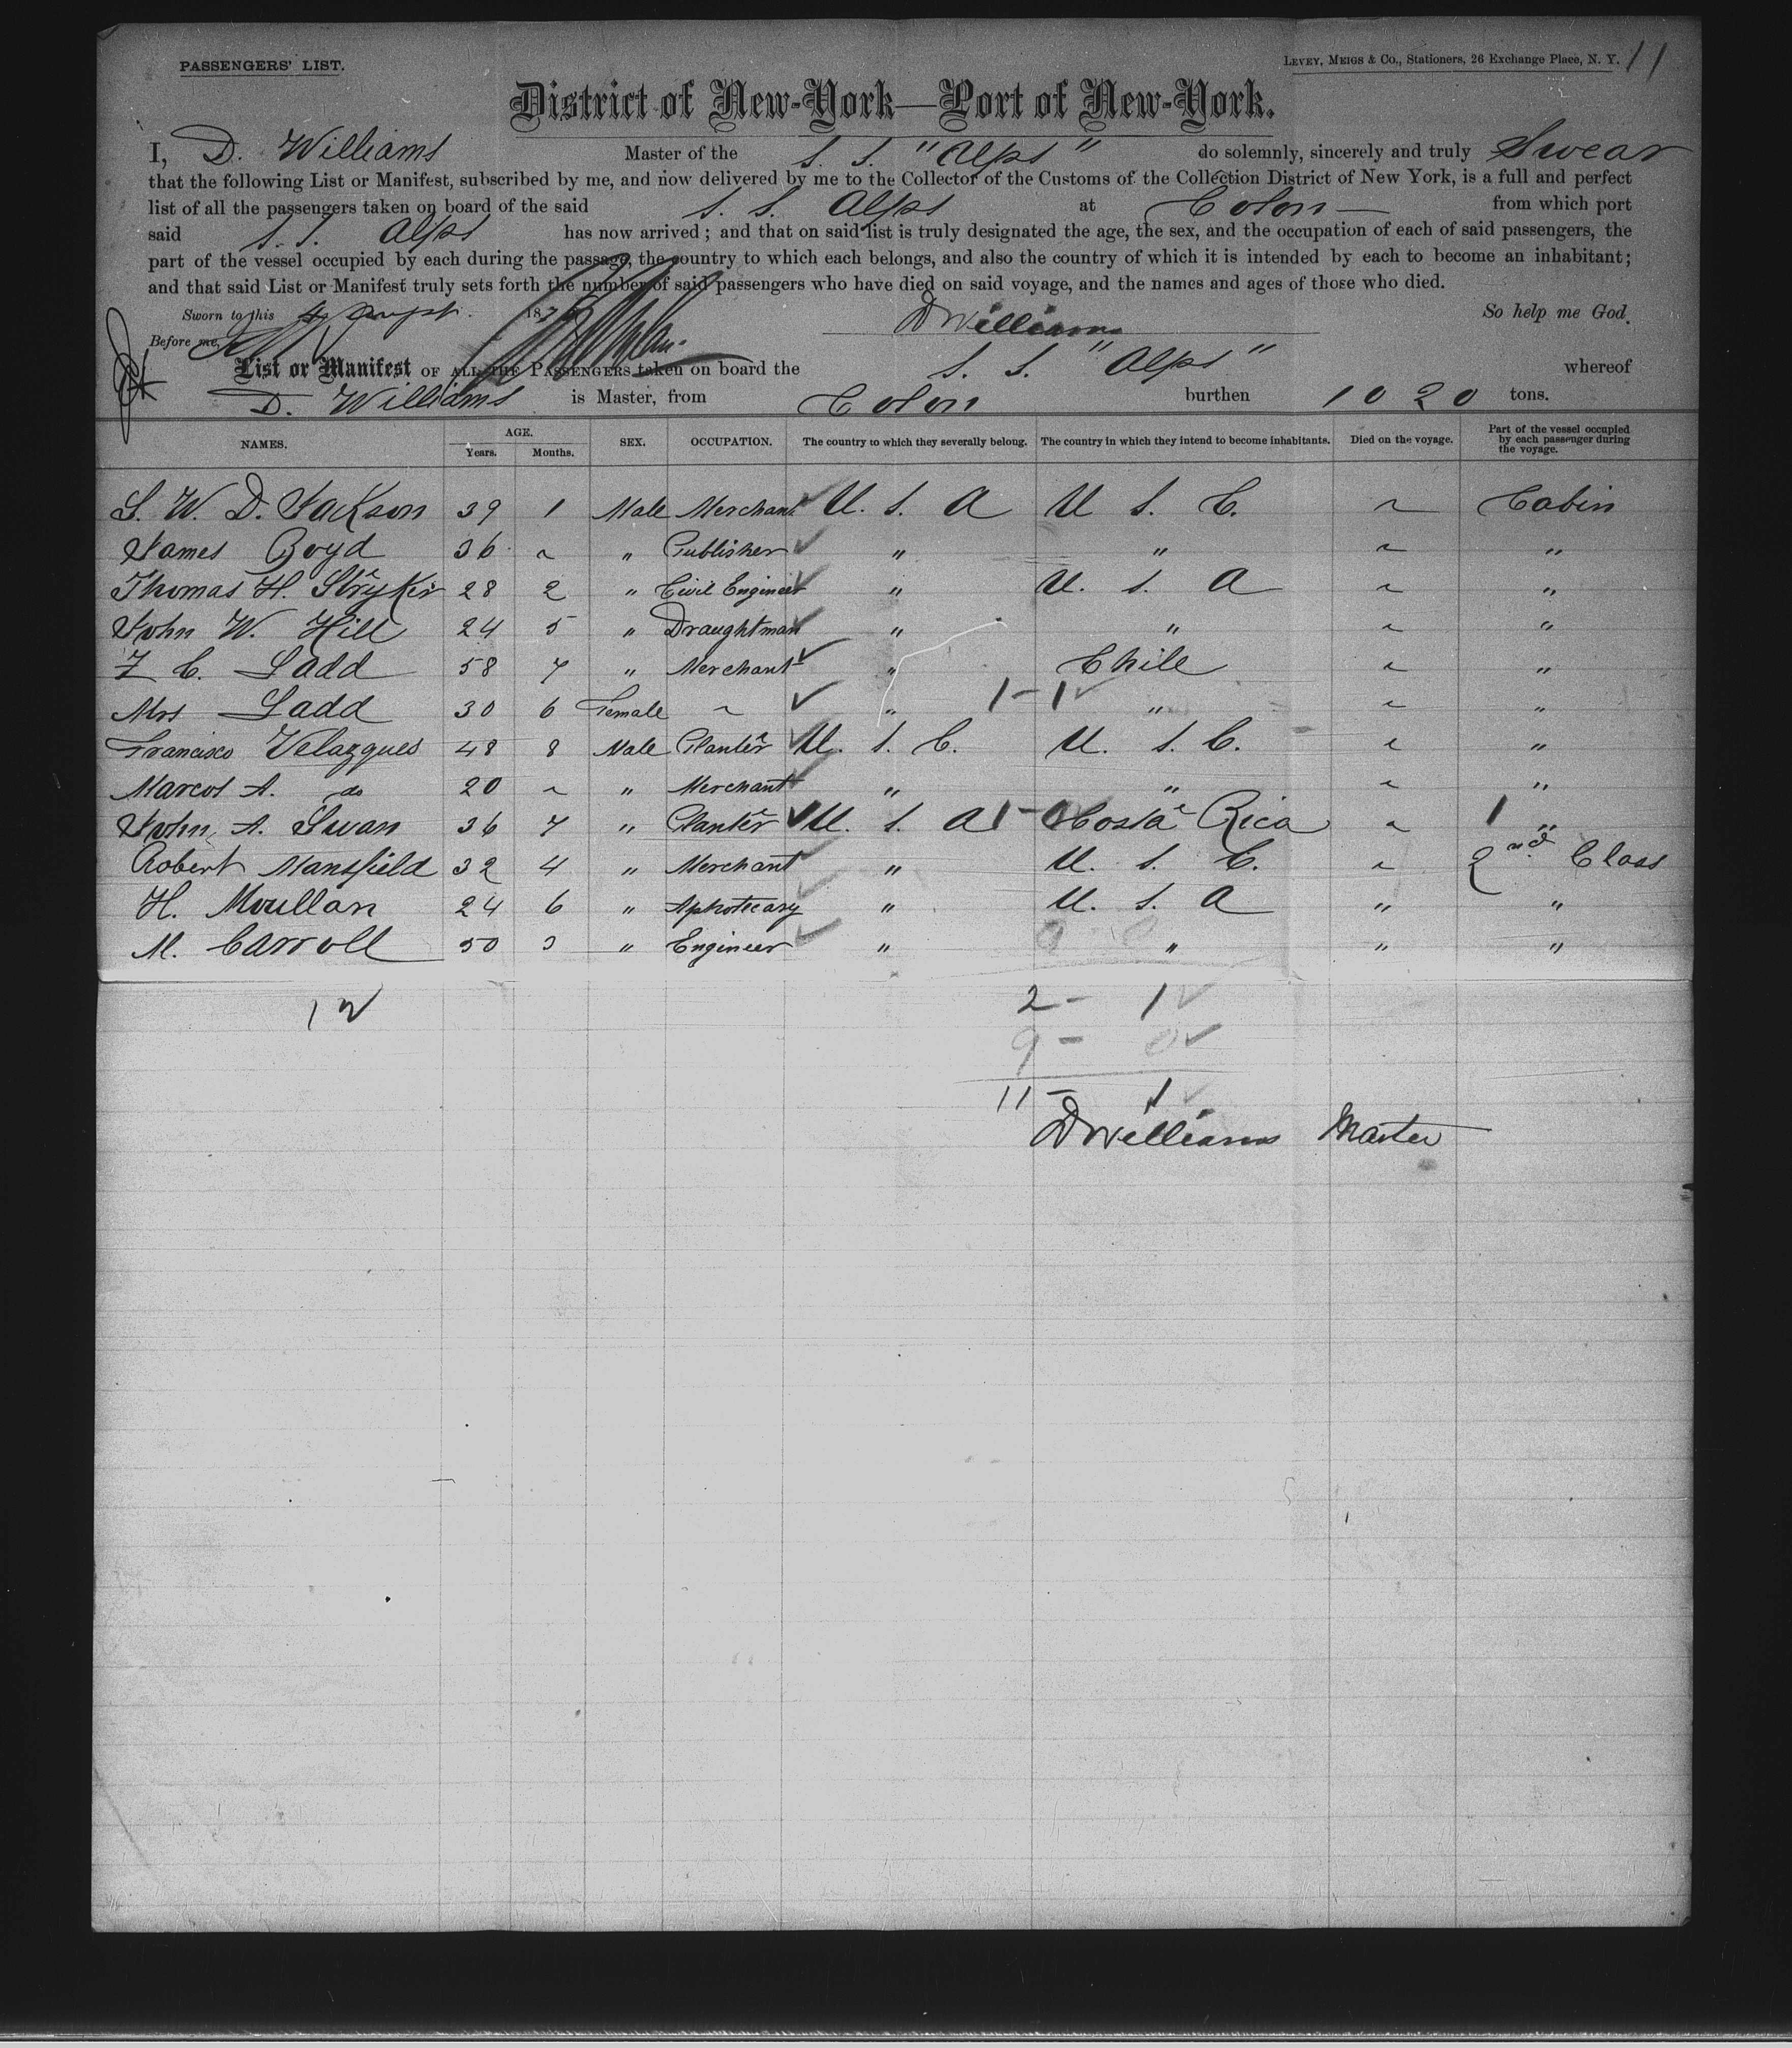 PASSENGERS' LIST.
LEVEY, MEIGS & CO., Stationers, 26 Exchange Place, N. Y. 11
District of New-York—Port of New-York.
I, D. Williams Master of the S. S. "Alps" do solemnly, sincerely and truly Swear
that the following List or Manifest, subscribed by me, and now delivered by me to the Collector of the Customs of the Collection District of New York, is a full and perfect
list of all the passengers taken on board of the said S. S. Alps at Colon from which port
said S. S. Alps has now arrived; and that on said list is truly designated the age, the sex, and the occupation of each of said passengers, the
part of the vessel occupied by each during the passage, the country to which each belongs, and also the country of which it is intended by each to become an inhabitant;
and that said List or Manifest truly sets forth the number of said passengers who have died on said voyage, and the names and ages of those who died.
Sworn to this 187 DWilliams So help me God.
Before me,
List or Manifest OF ALL THE PASSENGERS taken on board the S. S. "Alps" whereof
D. Williams is Master, from Colon burthen 1020 tons.
NAMES. AGE. Years. Months. SEX. OCCUPATION. The country to which they severally belong. The country in which they intend to become inhabitants. Died on the voyage. Part of the vessel occupied by each passenger during the voyage.
S. W. D. Jackson 39 1 Male Merchant U. S. A U S. C. ~ Cabin
James Boyd 36 ~ " Publisher " " ~ "
Thomas H. Stryker 28 2 " Civil Engineer " U. S. A ~ "
John W. Hill 24 5 " Draughtman " " ~ "
Z C. Ladd 58 7 " Merchant " Chile ~ "
Mrs Ladd 30 6 Female ~ " 1-1 " ~ "
Francisco Velazques 48 8 Male Planter U. S. C. U. S. C. ~ "
Marcos A. do 20 ~ " Merchant " " ~ "
John A. Swan 36 7 " Planter U. S. A 1- Costa Rica ~ 1 "
Robert Mansfield 32 4 " Merchant " U. S. C. ~ 2nd Class
H. Moullan 24 6 " Aphotecary " U. S. A " "
M. Carroll 50 3 " Engineer " " " "
12
2 - 1
9 - 0
11 - 1
DWilliams Master